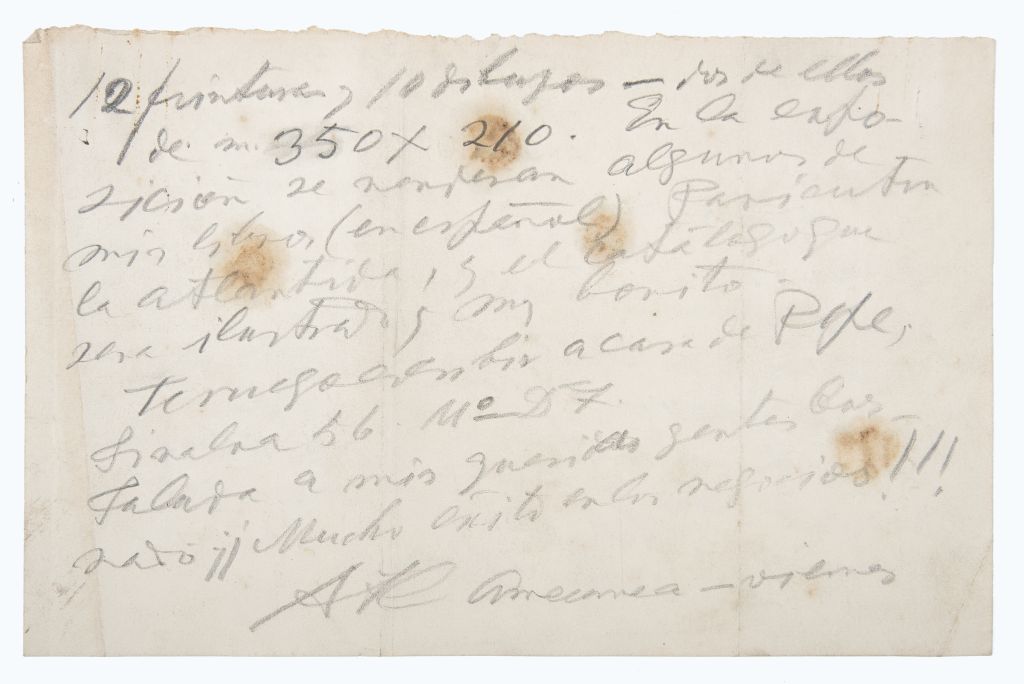 12 pinturas y 10 dibujos — dos de ellos
de m. 350 X 210. En la expo-
sición se venderan algunos de
mis libros (en español) Paricutin
la atlantida, y el catálogo que
sera ilustrado y muy bonito —
Te ruego escribir a casa de Pepe,
Sinaloa 56. Nº D 7.
Saluda a mis queridas gentes
¡¡ Mucho exito en los negocios!!!
Amecameca — viernes